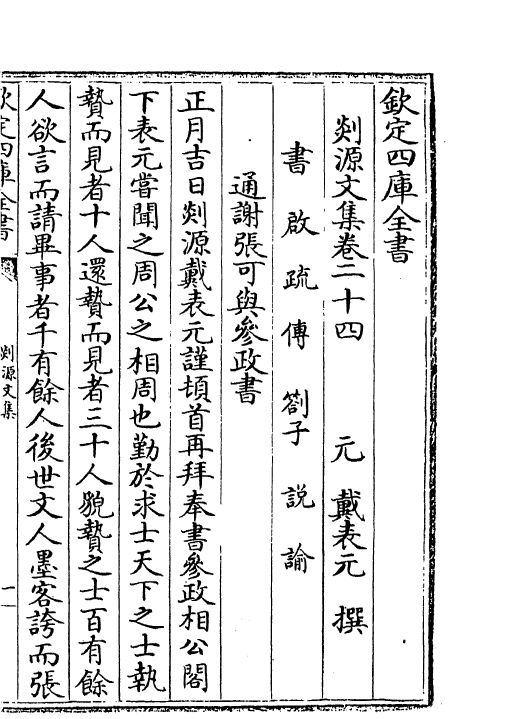 欽定四庫全書
剡源文集卷二十四　元　戴表元　撰
書　啟　疏　傳　劄子　說　諭
通謝張可與參政書
正月吉日剡源戴表元謹頓首再拜奉書參政相公閤
下表元嘗聞之周公之相周也勤於求士天下之士執
贄而見者十人還贄而見者三十人貌贄之士百有餘
人欲言而請畢事者千有餘人後世文人墨客誇而張
欽定四庫全書
剡源文集
一